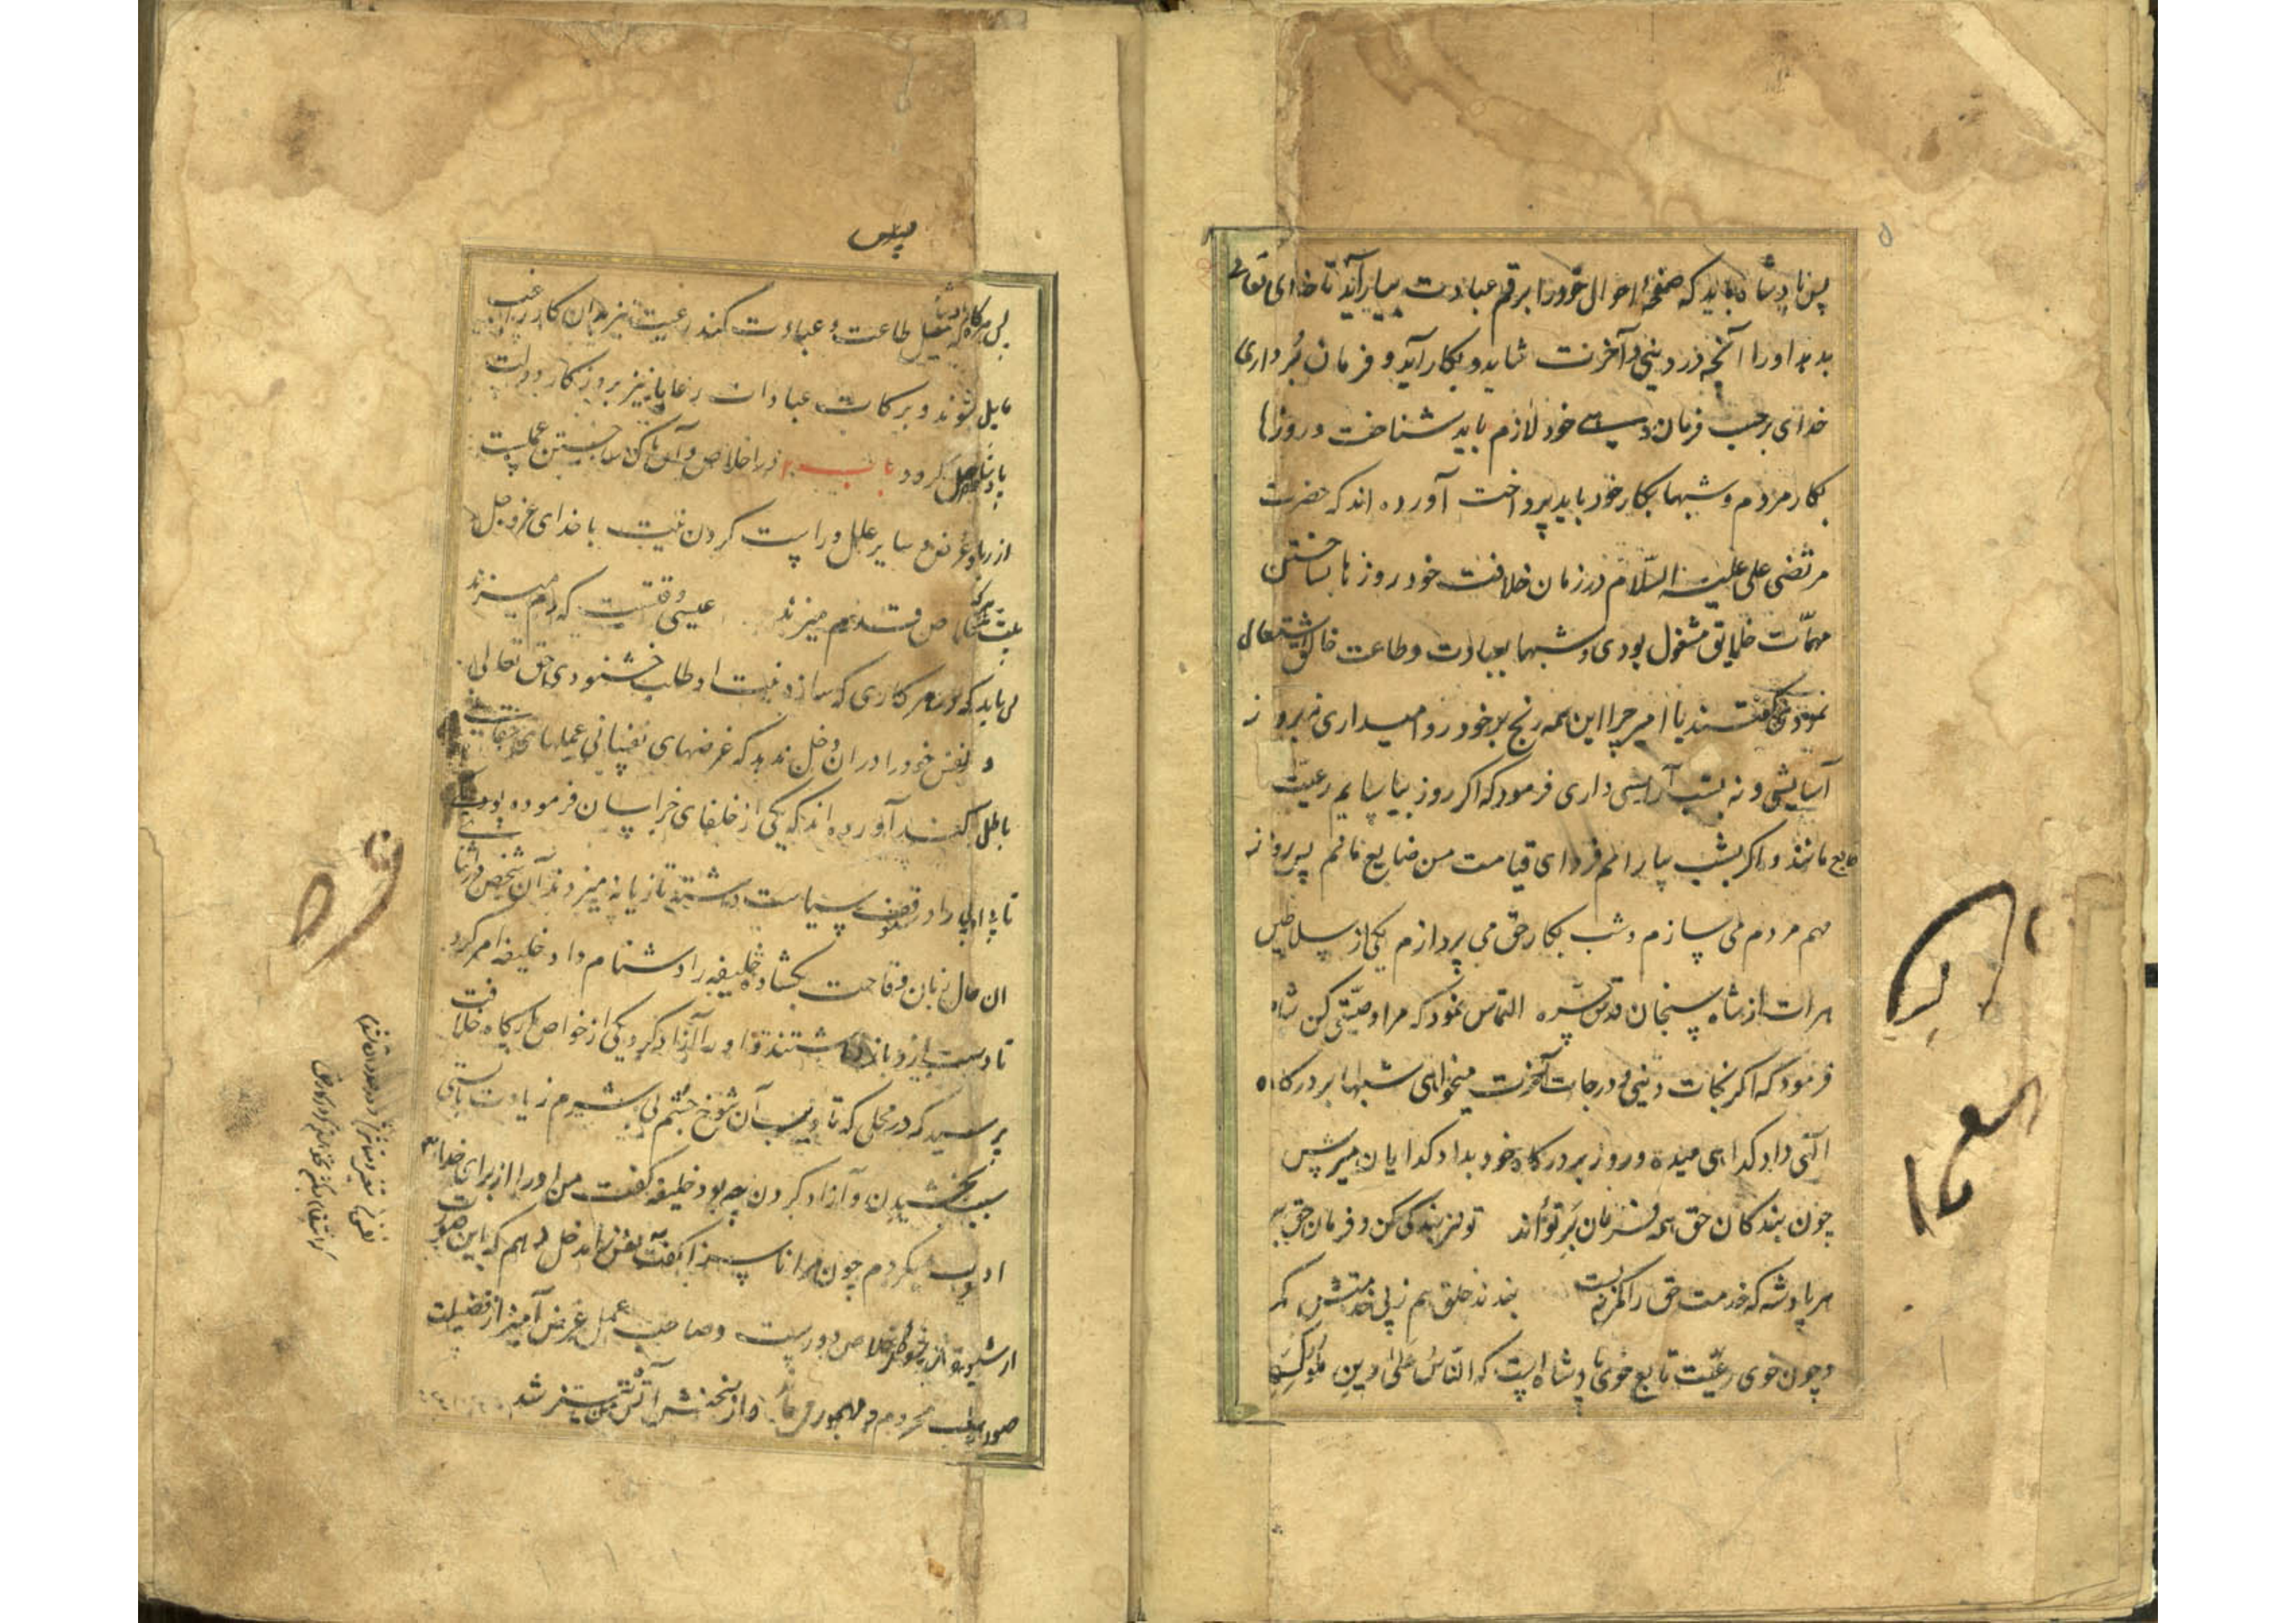 پس پادشاه باید که صفحهٔ احوال خود را برقم عبادت بیاراید تا خدای تعالی
بدهد او را آنچه در دنیی و آخرت شاید و بکار آید و فرمان بُرداری
خدای برحسب فرمان دهی خود لازم باید شناخت و روزها
بکار مردم و شبها بکار خود باید پرداخت آورده اند که حضرت
مرتضی علی علیه السّلام در زمان خلافت خود روزها بساختن
مهمّات خلایق مشغول بودی و شبها بعبادت و طاعت خالق اشتغال
نمودی گفتند یا امیر چرا این همه رنج بر خود روا میداری نه بروز
آسایشی و نه بشب آرامشی داری فرمود که اکر روز بیاسایم رعیّت
ضایع مانند و اکر بشب بیارامم فردای قیامت من ضایع مانم پس روز
مهم مردم می سازم و شب بکار حق می پردازم یکی از سلاطین
هرات از شاه سنجان قدّس سّره التماس نمود که مرا وصیّتی کن شاه
فرمود که اکر نجات دنیی و درجات آخرت میخواهی شبها بر درکاه
الٓهی داد کدایی میده و روز بر درکاه خود بداد کدایان میرس
چون بندکان حق همه فرمان بَر تواَند تو نیز بندکی کن و فرمان حق ببر
هر پادشه که خدمت حق را کمر ببست بندند خلق هم ز پی خدمتش کمر
و چون خوی رعیّت تابع خوی پادشاه است که النّاسُ عَلیٰ دینِ مُلُوکِهِم
پس
پس هرکاه که پادشاه میل طاعت و عبادت کند رعیت نیز بدان کار رغبت
مایل شوند و برکات عبادات رعایا نیز بروزکار دولت
پادشاه واصل کردد باب ۲ در اخلاص و آن پاک ساختن عملست
از ریا و غرض و سایر علل و راست کردن نیت با خدای عز و جل
بیت هرکه باخلاص قدم میزند عیسی وقتست که دم میزند
می باید که در هر کاری که سازد نیت او طلب خشنودی حق تعالی
و نفس خود را در ان دخل ندهد که غرضهای نفسانی عملهای حقانی
باطل کند آورده اند که یکی از خلفای خراسان فرموده بود که بی
تا بی ادبی را در موقف سیاست داشته تازیانه میزدند آن شخص در اثنا
ان حال زبان وقاحت بکشاد و خلیفه را دشنام داد خلیفه امر کرد
تا دست ازو باز داشتند و او را آزاد کرد یکی از خواص بارکاه خلافت
پرسید که در محلی که تادیب آن شوخ چشم بی شرم زیادت بایستی
سبب بخشیدن و آزاد کردن چه بود خلیفه کفت من او را از برای خدا
ادب میکردم چون مرا ناسزا کفت نفس
از شیوهٔ اخلاص دورست و صاحب عمل غرض آمیز از فضیلت
ثواب محروم و مهجور از سخنش آتش من تیز شد